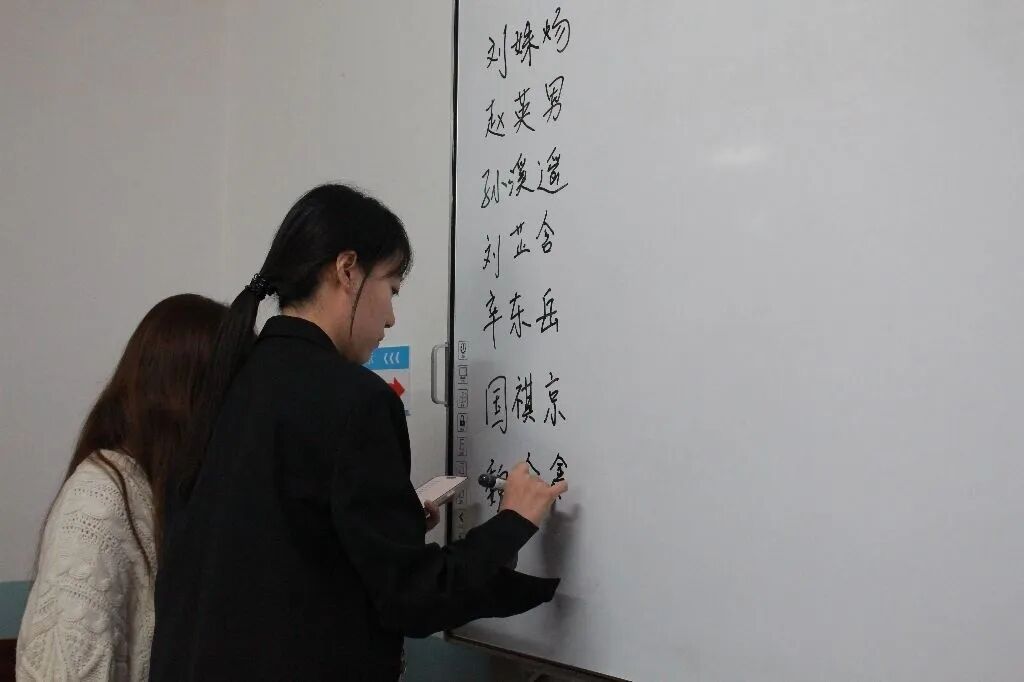 刘姝炀
赵英男
孙溪遥
刘芷含
辛东岳
国祺京